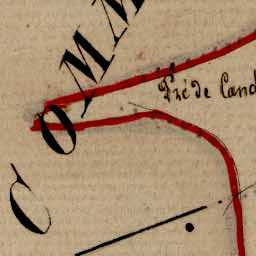 COMM
Pré de Cand